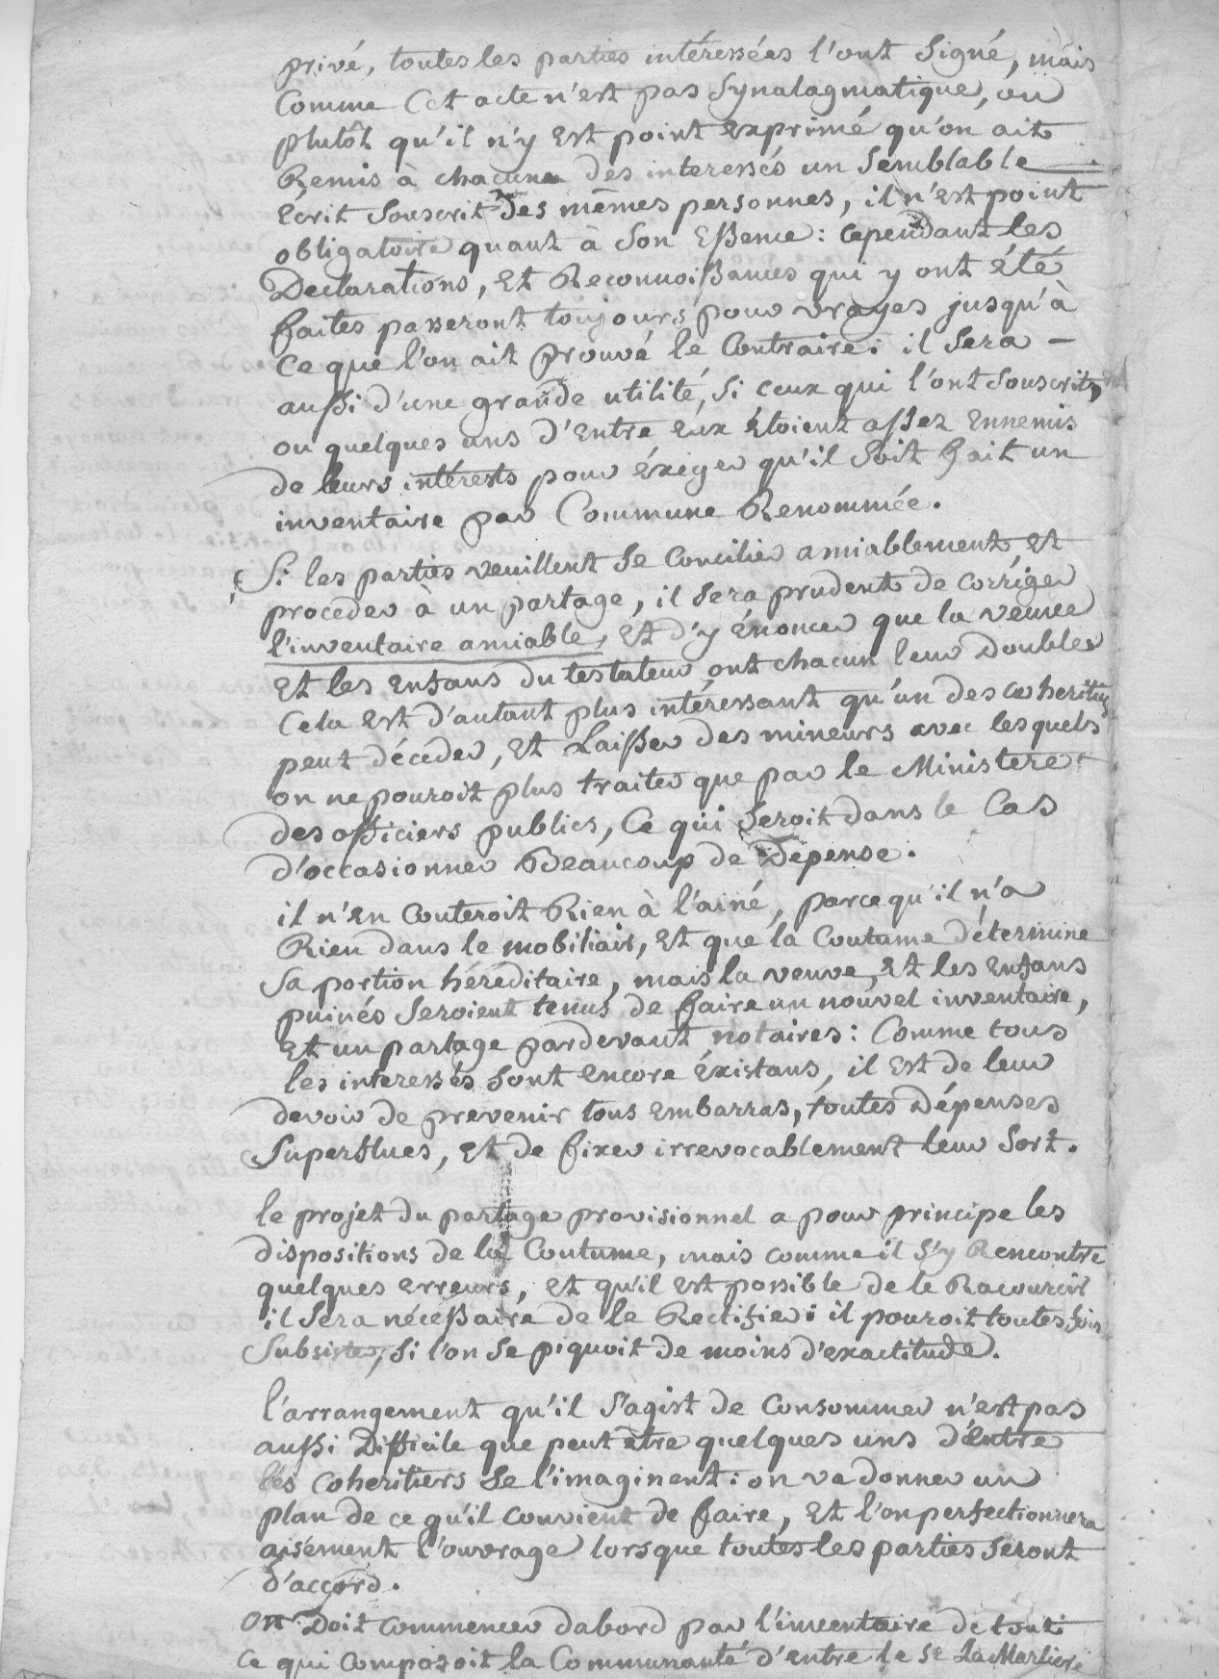 privé, toutes les parties intéressées l'ont signé, mais
Comme Cet acte n'est pas Synalagmatique, ou
plutôt qu'il n'y est point exprimé qu'on ait
Remis à chacune des interessés un semblable
Ecrit souscrit des mêmes personnes, il n'est point
obligatoire quant à son Essence : cependant les
Declarations, et Reconnoissances qui y ont été
faites passeront toujours pour vrayes jusqu'à
ce que l'on ait prouvé le Contraire : il sera -
aussi d'une grande utilité, si ceux qui l'ont souscrits,
ou quelques uns d'entre eux étoient assez Ennemis
de leurs intérests pour éxiger qu'il soit fait un
inventaire par Commune Renommée.
Si les parties veuillent se Concilier amiablement, et
proceder à un partage, il sera prudent de corriger
l'inventaire amiable, et d'y énoncer que la veuve
et les enfans du testateur ont chacun leur double
Cela est d'autant plus intéressant qu'un des coheritiers
peut décéder, et Laisser des mineurs avec lesquels
on ne pouroit plus traiter que par le Ministere
des officiers publics, Ce qui seroit dans le Cas
d'occasionner Beaucoup de Depense.
il n'en couteroit Rien à l'ainé, parce qu'il n'a
Rien dans le mobiliair, et que la Coutume détermine
sa portion héréditaire, mais la veuve, et les enfans
puinés seroient tenus de faire un nouvel inventaire,
et un partage pardevant notaires : Comme tous
les interessés sont encore éxistans, il est de leur
devoir de prevenir tous embarras, toutes dépenses
superflues, et de fixer irrevocablement leur sort.
le projet du partage provisionnel a pour principe les
dispositions de la Coutume, mais comme il s'y Rencontre
quelques erreurs, et qu'il est possible de le Racourcir
il sera nécessaire de le Rectifier : il pouroit toutes fois
subsister, si l'on se piquoit de moins d'exactitude.
l'arrangement qu'il s'agist de Consommer n'est pas
aussi Difficile que peut etre quelques uns d'entre
les coheritiers se l'imaginent : on va donner un
plan de ce qu'il convient de faire, et l'on perfectionnera
aisément l'ouvrage lorsque toutes les parties seront
d'accord.
On Doit commencer dabord par l'inventaire de tout
ce qui composoit la Communauté d'entre le Sr. La Marliere